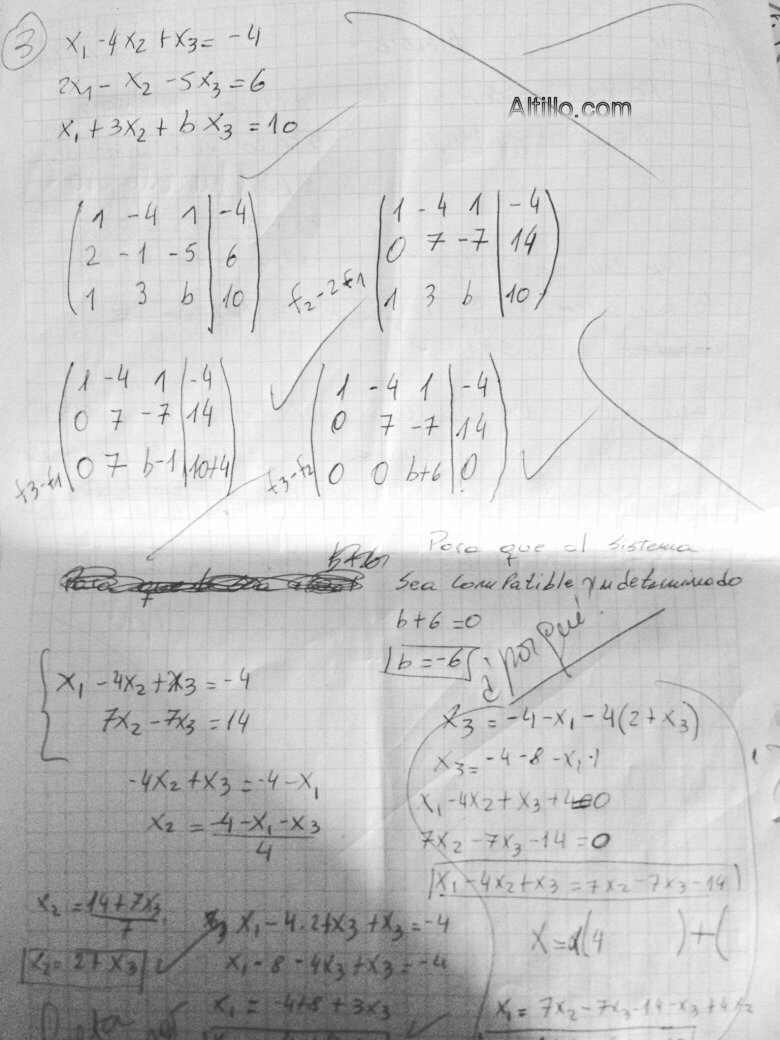 3
x₁ - 4x₂ + x₃ = -4
2x₁ - x₂ - 5x₃ = 6
x₁ + 3x₂ + b x₃ = 10
Altillo.com
1 -4 1 | -4
2 -1 -5 | 6
1 3 b | 10
f₂-2f₁
1 -4 1 | -4
0 7 -7 | 14
1 3 b | 10
f₃-f₁
1 -4 1 | -4
0 7 -7 | 14
0 7 b-1 | 10+4
f₃-f₂
1 -4 1 | -4
0 7 -7 | 14
0 0 b+6 | 0
Para que el sistema
sea compatible indeterminado
b+6 = 0
b = -6
¿porqué?
x₁ - 4x₂ + x₃ = -4
7x₂ - 7x₃ = 14
-4x₂ + x₃ = -4 - x₁
x₂ = -4 - x₁ - x₃
4
x₂ = 14 + 7x₃
7
x₂ = 2 + x₃
x₁ - 4.2 + x₃ + x₃ = -4
x₁ - 8 - 4x₃ + x₃ = -4
x₁ = -4+8 + 3x₃
x₃ = -4 - x₁ - 4(2 + x₃)
x₃ = -4 - 8 - x₁
x₁ - 4x₂ + x₃ + 4 = 0
7x₂ - 7x₃ - 14 = 0
x₁ - 4x₂ + x₃ = 7x₂ - 7x₃ - 14
X = α(4 ) + (
x₁ = 7x₂ - 7x₃ - 14 - x₃ + 4x₂